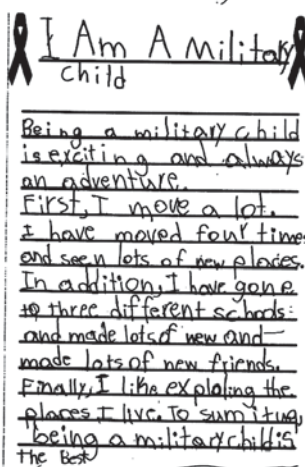 I Am A Military
child
Being a military child
is exciting and always
an adventure.
First, I move a lot.
I have moved four times
and seen lots of new places.
In addition, I have gone
to three different schools
and made lots of new and
made lots of new friends.
Finally, I like exploling the
places I live. To sum it up,
being a military child is
the Best